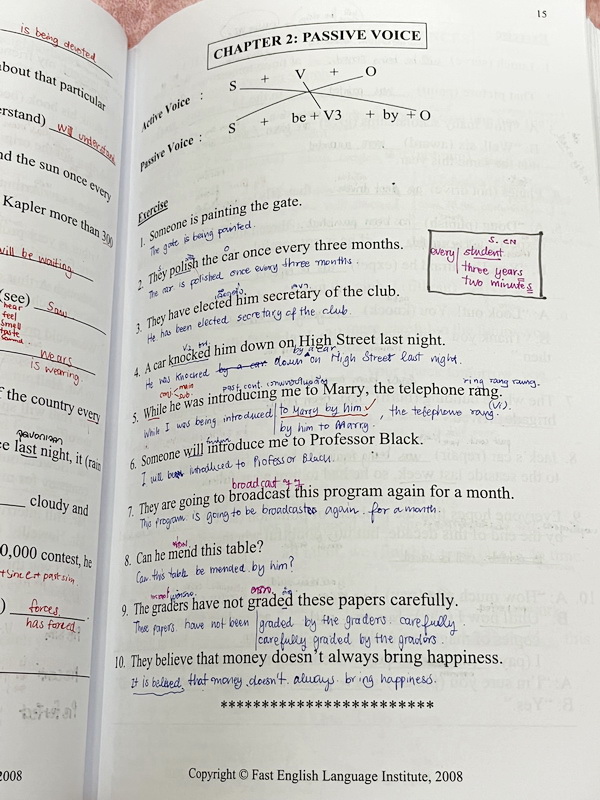 15
is being deleted
CHAPTER 2: PASSIVE VOICE
Active Voice : S + V + O
Passive Voice : S + be + V3 + by + O
bout that particular
erstand) will understand
nd the sun once every
Kapler more than 300
will be waiting
(see) saw
hear
feel
smell
taste
sound
wears
is wearing
f the country every
ce last night, it (rain
cloudy and
0,000 contest, he
) forces
has forced
2008
Exercise
1. Someone is painting the gate.
The gate is being painted.
2. They polish the car once every three months.
The car is polished once every three months.
3. They have elected him secretary of the club.
He has been elected secretary of the club.
4. A car knocked him down on High Street last night.
by a car
He was knocked by a car down on High Street last night.
past cont.
ring rang rung.
5. While he was introducing me to Marry, the telephone rang.
(vi).
While I was being introduced to Marry by him, the telephone rang.
by him to Marry.
future
6. Someone will introduce me to Professor Black.
I will be introduced to Professor Black.
broadcast
7. They are going to broadcast this program again for a month.
This program is going to be broadcast again for a month.
8. Can he mend this table?
Can this table be mended by him?
9. The graders have not graded these papers carefully.
These papers have not been graded by the graders carefully.
carefully graded by the graders.
10. They believe that money doesn't always bring happiness.
It is believed that money doesn't always bring happiness.
************************
S. CN
every student
three years
two minutes
Copyright © Fast English Language Institute, 2008